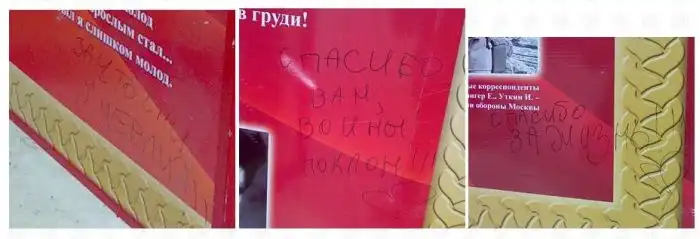 олод
рослым стал...
л я слишком молод.
ЗА ЧТО ВЫ
УМЕРЛИ!!!
в груди!
СПАСИБО
ВАМ,
ВОИНЫ
ПОКЛОН!!!
ые корреспонденты
нгер Е., Уткин И. –
и обороны Москвы
СПАСИБО
ЗА ЖИЗНЬ!!